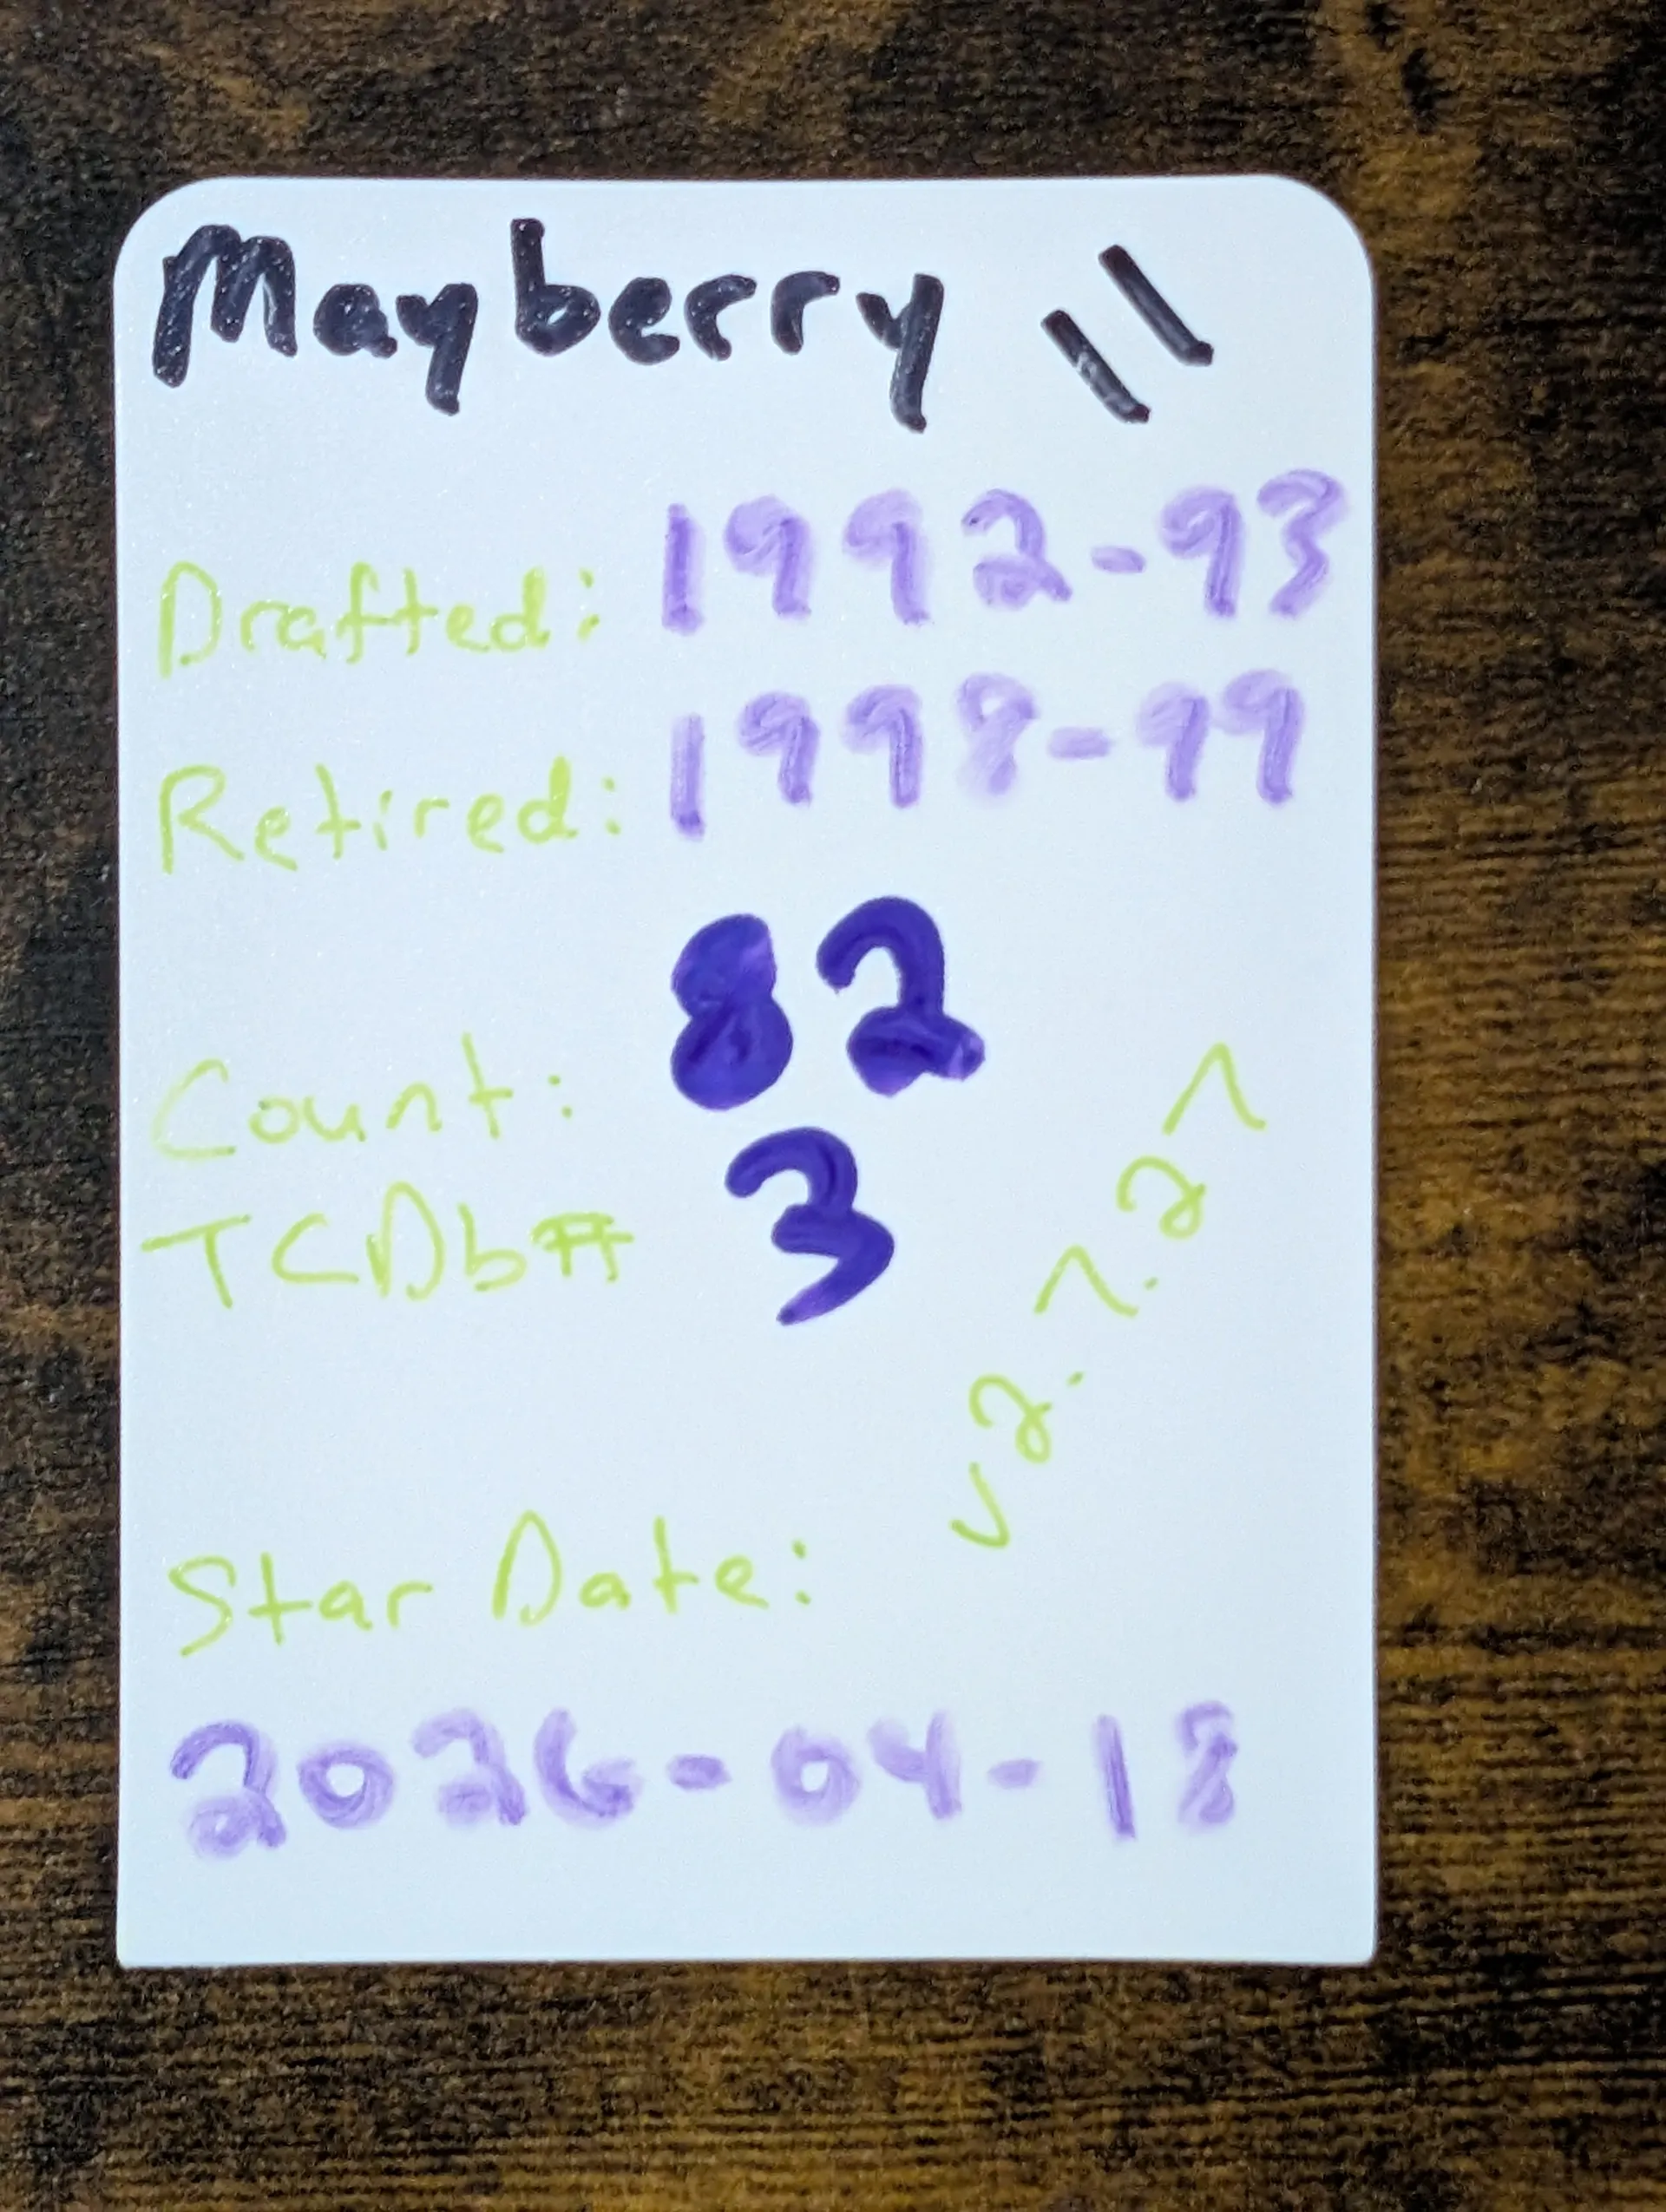 Mayberry \\
Drafted: 1992-93
Retired: 1998-99
Count: 82
TCDb# 3
Star Date:
2026-04-18